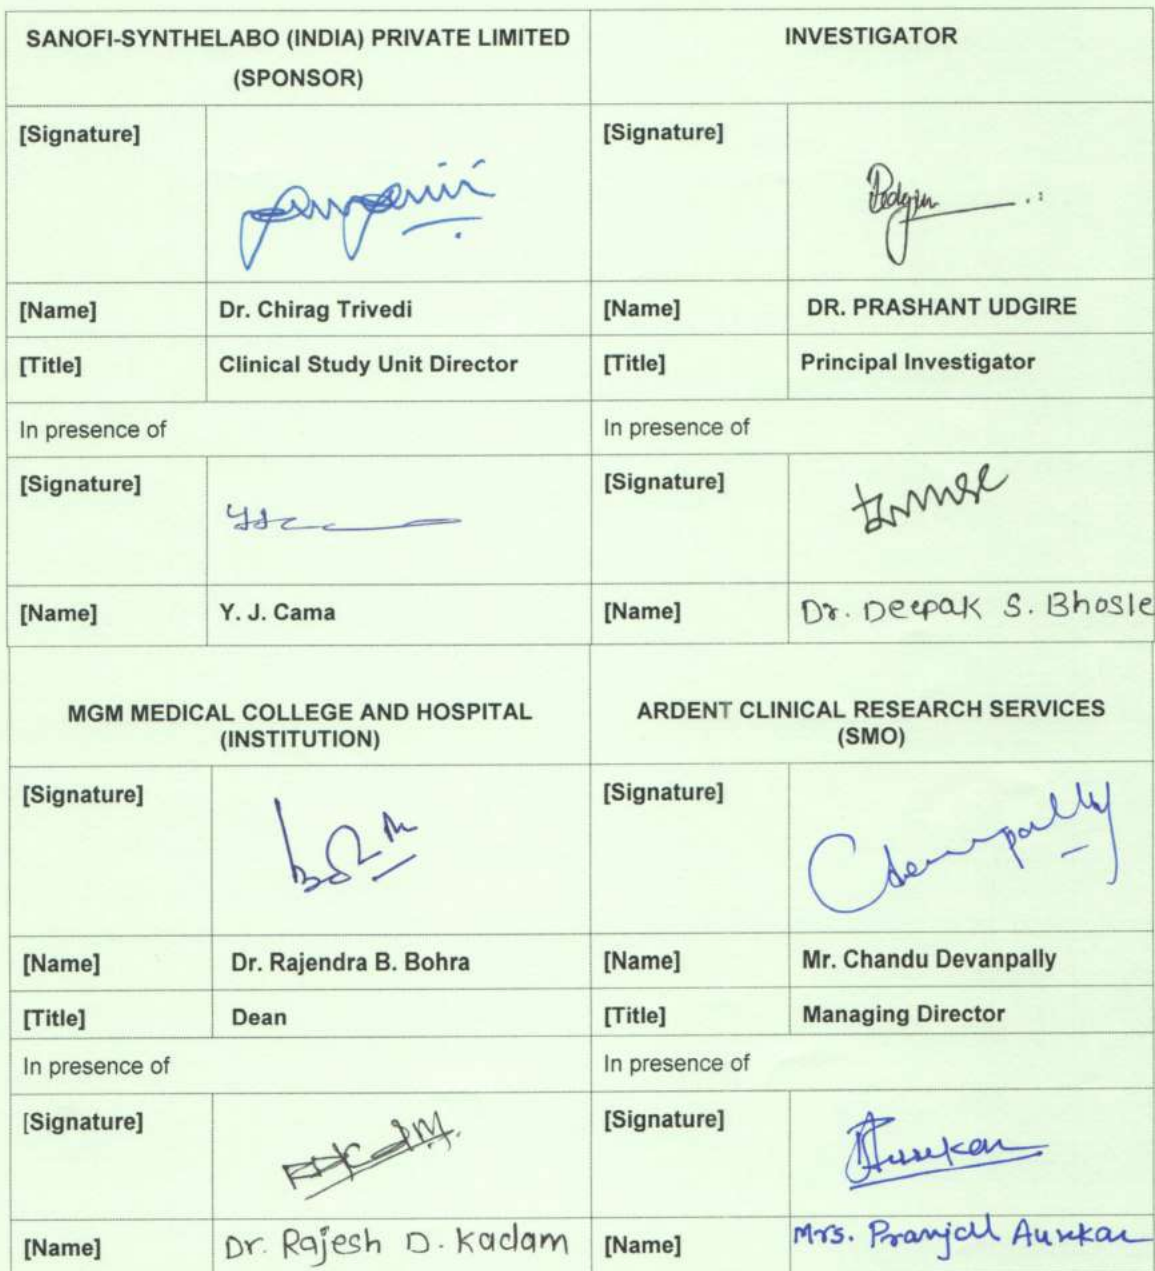 SANOFI-SYNTHELABO (INDIA) PRIVATE LIMITED
(SPONSOR)
INVESTIGATOR
[Signature]
[Signature]
[Name] Dr. Chirag Trivedi
[Name] DR. PRASHANT UDGIRE
[Title] Clinical Study Unit Director
[Title] Principal Investigator
In presence of
In presence of
[Signature]
[Signature]
[Name] Y. J. Cama
[Name] Dr. Deepak S. Bhosle
MGM MEDICAL COLLEGE AND HOSPITAL
(INSTITUTION)
ARDENT CLINICAL RESEARCH SERVICES
(SMO)
[Signature]
[Signature]
[Name] Dr. Rajendra B. Bohra
[Name] Mr. Chandu Devanpally
[Title] Dean
[Title] Managing Director
In presence of
In presence of
[Signature]
[Signature]
[Name] Dr. Rajesh D. Kadam
[Name] Mrs. Pranjall Aurekar